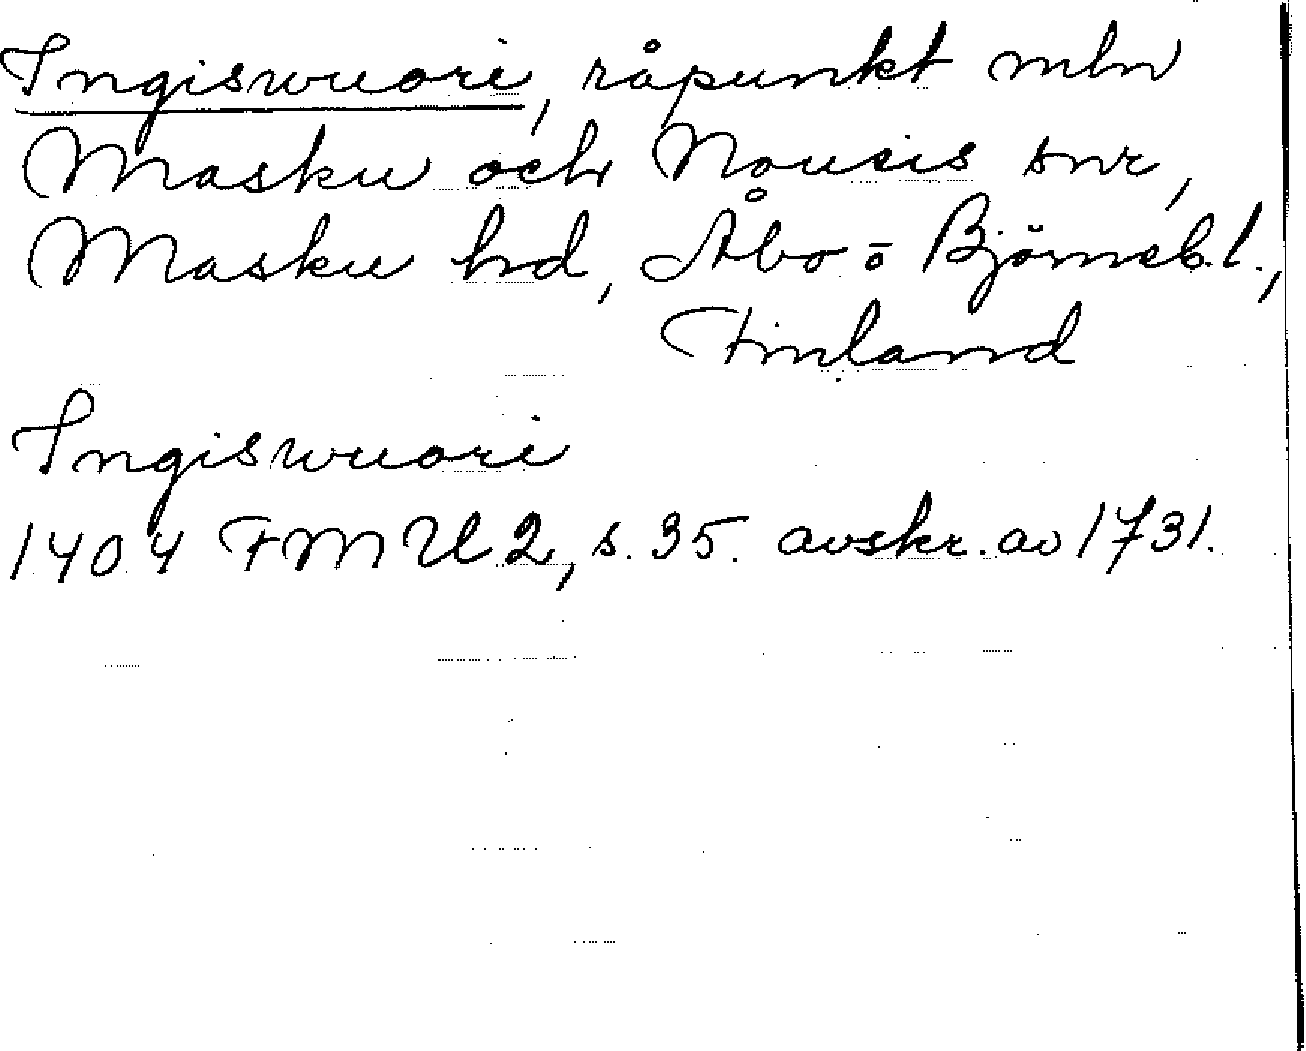 Ingiswuori, råpunkt mln
Masku och Nousis snr,
Masku hd, Åbo o Björneb. l.,
Finland
Ingiswuori
1404 FMU 2, s. 35. avskr. av 1731.